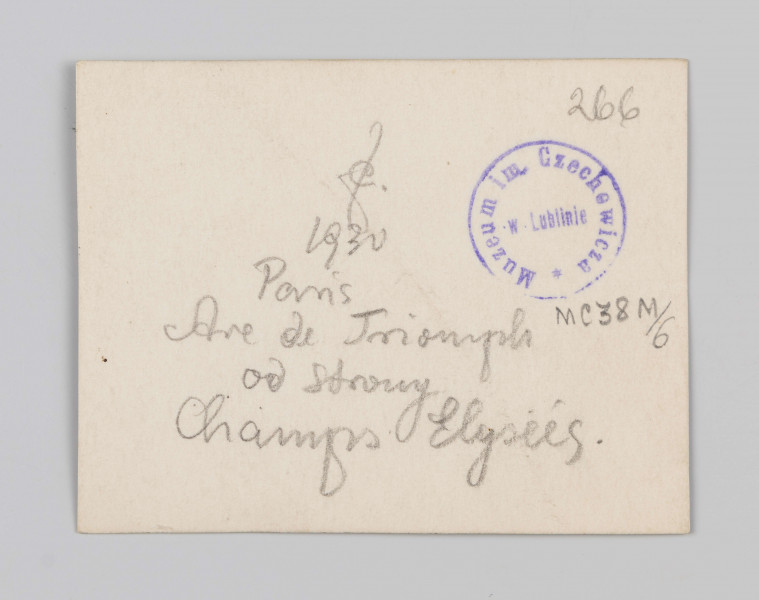 266
Muzeum im. Czechowicza
w Lublinie
*
1930
Paris
Arc de Triomph
od strony
Champs Elyséés.
MC38M/6